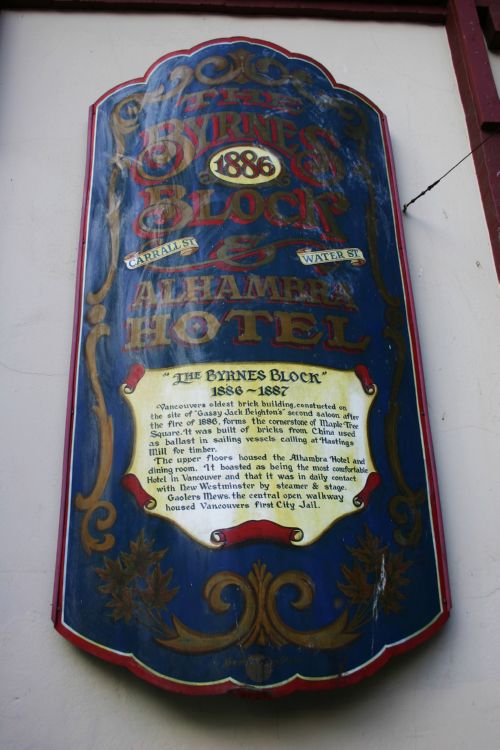 THE
BYRNES
1886
BLOCK
CARRALL ST.
&
WATER ST.
ALHAMBRA
HOTEL
"THE BYRNES BLOCK"
1886 ~ 1887
Vancouvers oldest brick building, constucted on
the site of "Gassy Jack Deighton's" second saloon after
the fire of 1886, forms the cornerstone of Maple Tree
Square. It was built of bricks from China used
as ballast in sailing vessels calling at Hastings
Mill for timber.
The upper floors housed the Alhambra Hotel and
dining room. It boasted as being the most comfortable
Hotel in Vancouver and that it was in daily contact
with New Westminster by steamer & stage.
Gaolers Mews, the central open walkway
housed Vancouvers first City Jail.